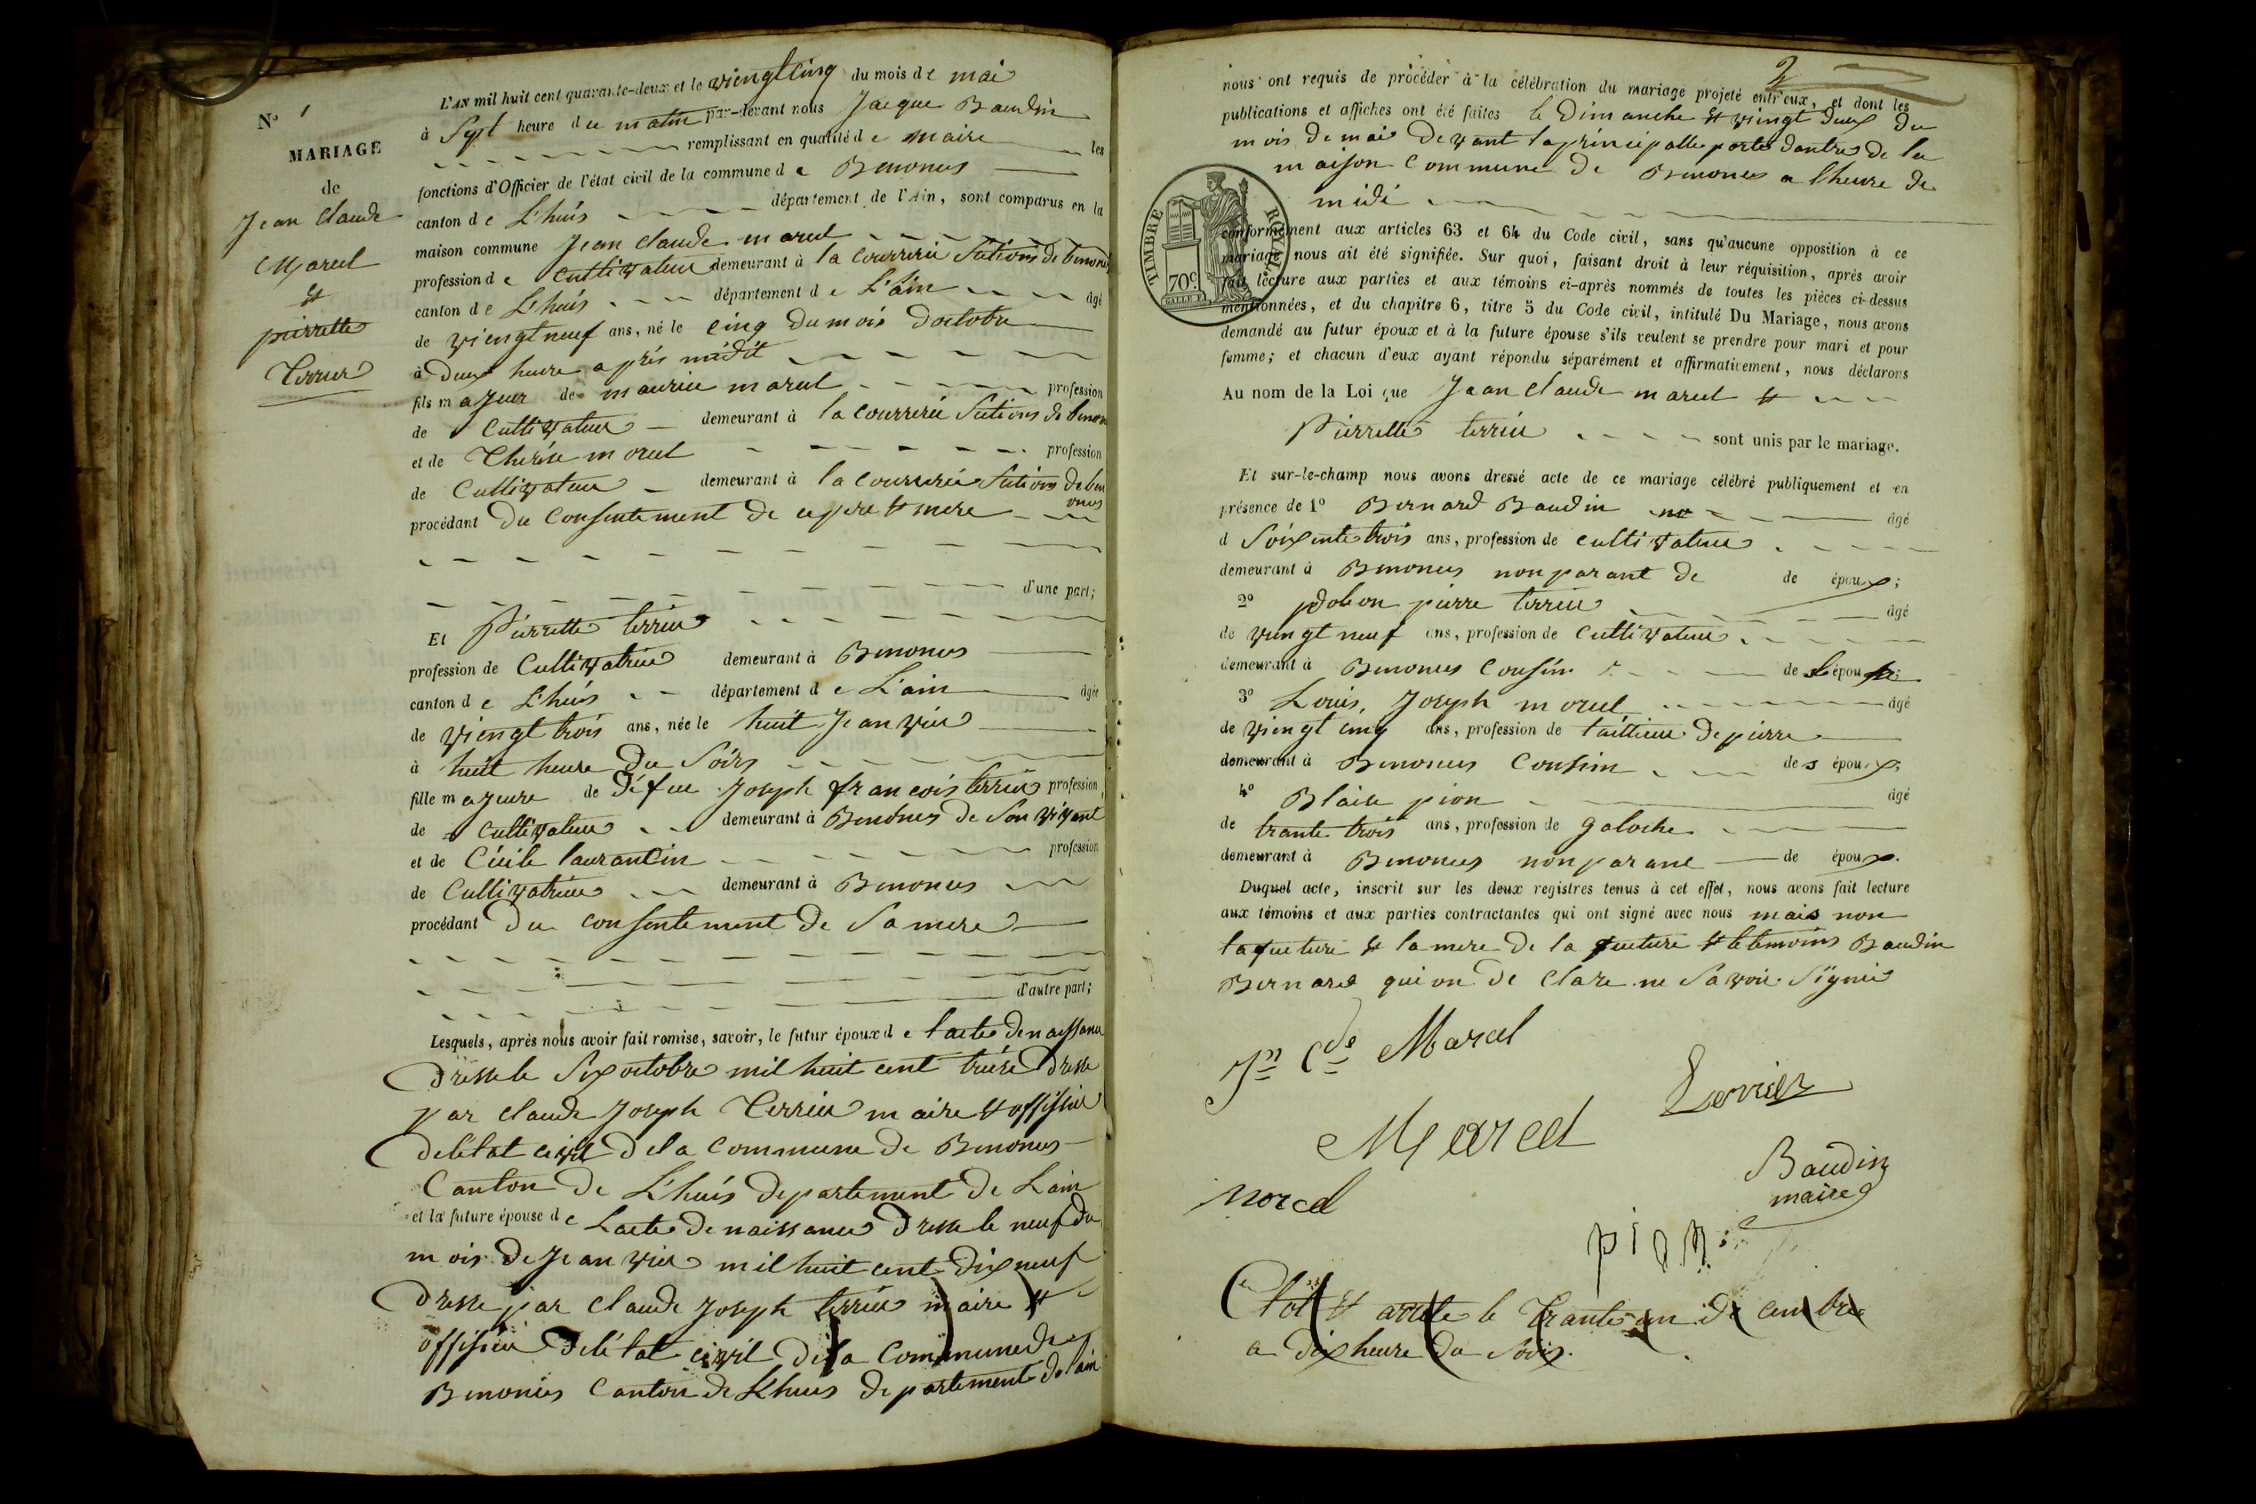 N.º 1
MARIAGE
de
Jean Claude
Marcel
et
pierrette
Terrier
L'AN mil huit cent quarante-deux et le viengtcinq du mois de mai
à Sept heure du matin par-devant nous Jacque Baudin
remplissant en qualité de maire les
fonctions d'Officier de l'état civil de la commune de Benonces
canton de L'huis département de l'Ain, sont comparus en la
maison commune Jean Claude marcel
profession de Cultivateur demeurant à la Courrerie Sections de benonces
canton de L'huis département de L'ain âgé
de viengt neuf ans, né le cinq du mois doctobre
à Deux heure après midit
fils majeur de maurice marcel profession
de Cultivateur demeurant à la Courrerie Sections de benonces
et de Thérèse morel profession
de Cultivateur demeurant à la Courrerie Sections de benonces
procédant du Consentement de ces pere et mere
d'une part;
Et Pierrette terrier
profession de Cultivatrice demeurant à Benonces
canton de L'huis département de L'ain âgée
de viengt trois ans, née le huit Jeanvier
à huit heure du Soirs
fille majeure de Défeu Joseph françois terrier profession
de Cultivateur demeurant à Benonces de Son vivant
et de Cécile laurantin profession
de Cultivatrice demeurant à Benonces
procédant Du consentement de Sa mere
d'autre part;
Lesquels, après nous avoir fait remise, savoir, le futur époux de l'acte de naissance
dresse le Six octobre mil huit cent treize Dresse
par claude Joseph Terrier maire et offissier
de létat civil de la Commune de Benonces
Canton de L'huis departement de Lain
et la future épouse de Lacte de naissance dresse le neuf du
mois de Jeanvier mil huit cent dix neuf
Dresse par claude Joseph terrier maire et
offisier de létat civil de la Commune de
Benonces Canton de L'huis departement de lain
2
nous ont requis de procéder à la célébration du mariage projeté entr'eux, et dont les
publications et affiches ont été faites le Dimanche et vingt deux du
mois de mai devant la principalle porte dantre de la
maison Commune de Benonces a lheure de
midi
TIMBRE ROYAL
70c
conformément aux articles 63 et 64 du Code civil, sans qu'aucune opposition à ce
mariage nous ait été signifiée. Sur quoi, faisant droit à leur réquisition, après avoir
fait lecture aux parties et aux témoins ci-après nommés de toutes les pièces ci-dessus
mentionnées, et du chapitre 6, titre 5 du Code civil, intitulé Du Mariage, nous avons
demandé au futur époux et à la future épouse s'ils veulent se prendre pour mari et pour
femme; et chacun d'eux ayant répondu séparément et affirmativement, nous déclarons
Au nom de la Loi que Jean Claude marcel et
Pierrette terrier sont unis par le mariage.
Et sur-le-champ nous avons dressé acte de ce mariage célébré publiquement et en
présence de 1º Bernard Baudin âgé
d Soixente trois ans, profession de cultivateur
demeurant à Benonces non parant de de époux;
2º pierre terrier âgé
de vingt neuf ans, profession de Cultivateur
demeurant à Benonces Cousin de l'épou
3º Louis, Joseph morel âgé
de viengt cinq ans, profession de taillieur de pierre
demeurant à Benonces Coussin des époux;
4º Blaise pion âgé
de trante trois ans, profession de galoche
demeurant à Benonces non parant de époux.
Duquel acte, inscrit sur les deux registres tenus à cet effet, nous avons fait lecture
aux témoins et aux parties contractantes qui ont signé avec nous mais non
la futture et la mere de la futture et le temoins Baudin
Bernard qui on de Clare ne Savoir Signier
Jn Cde Marcel
Terrier
Marcel
Baudin
maire
morel
pion
Clot et arrete le trante un decembre
a dix heure du Soirs.